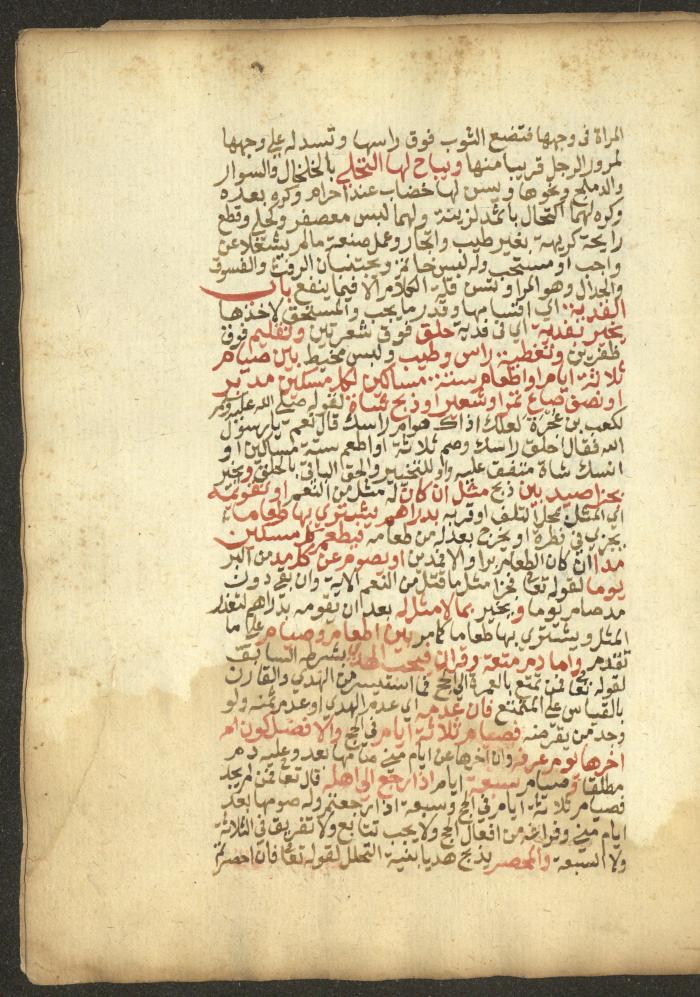 المراة في وجهها فتضع الثوب فوق راسها وتسدله على وجهها
لمرور الرجل قريبا منها ويباح لها التحلي بالخلخال والسوار
والدملج ونحوها ويسن لها خضاب عند احرام وكره بعده
وكره لهما اكتحال باثمد لزينة ولهما لبس معصفر وكحلي وقطع
رايحة كريهة بغير طيب واتجار وعمل صنعة مالم يشغلا عن
واجب او مستحب وله لبس خاتم ويجتنبان الرفث والفسوق
والجدال وهو المرا وتسن قلة الكلام الا فيما ينفع باب
الفدية اي اقسامها وقدر ما يجب والمستحق لاخذها
يخير بفدية اي في فدية حلق فوق شعرتين وتقليم فوق
ظفرين وتغطية راس وطيب ولبس مخيط بين صيام
ثلاثة ايام او اطعام ستة مساكين لكل مسكين مد بر
او نصف صاع تمر او شعير او ذبح شاة لقوله صلى الله عليه وسلم
لكعب بن عجرة لعلك اذاك هوام راسك قال نعم يا رسول
الله فقال احلق راسك وصم ثلاثة او اطعم ستة مساكين او
انسك شاة متفق عليه واو للتخيير والحق الباقي بالحلق ويخير
بجزا صيد بين ذبح مثل ان كان له مثل من النعم او تقويمه
اي المثل بمحل التلف او قربه بدراهم يشتري بها طعاما
يجزي في فطرة او يخرج بعدله من طعامه فيطعم كل مسكين
مدا ان كان الطعام برا والا فمدين او يصوم عن كل مد من البر
يوما لقوله تعا فجزا مثل ما قتل من النعم الاية وان بقي دون
مد صام يوما ويخير بما لا مثل له بعد ان يقومه بدراهم لتعذر
المثل ويشتري بها طعاما كما مر بين اطعام وصيام على ما
تقدم واما دم متعة وقران فيجب الهدي بشرطه السابق
لقوله تعا فمن تمتع بالعمرة الى الحج فما استيسر من الهدي والقارن
بالقياس على المتمتع فان عدمه اي عدم الهدي او عدم ثمنه ولو
وجد من يقرضه فصيام ثلاثة ايام في الحج والافضل كون ام
اخرها يوم عرفة وان اخرها عن ايام منى صامها بعد وعليه دم
مطلقا وصيام سبعة ايام اذا رجع الى اهله قال تعا فمن لم يجد
فصيام ثلاثة ايام في الحج وسبعة اذا رجعتم وله صومها بعد
ايام منى وفراغه من افعال الحج ولا يجب تتابع ولا تفريق في الثلاثة
ولا السبعة والمحصر يذبح هديا بنية التحلل لقوله تعا فان احصرتم